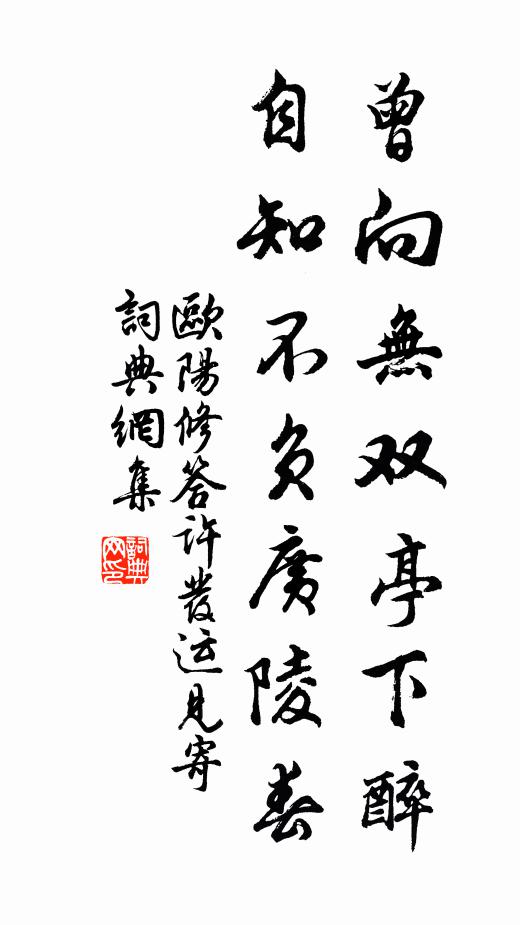 曾向無双亭下醉
自知不负廣陵春
歐陽修答许發运見寄
詞典網集
詞典网印